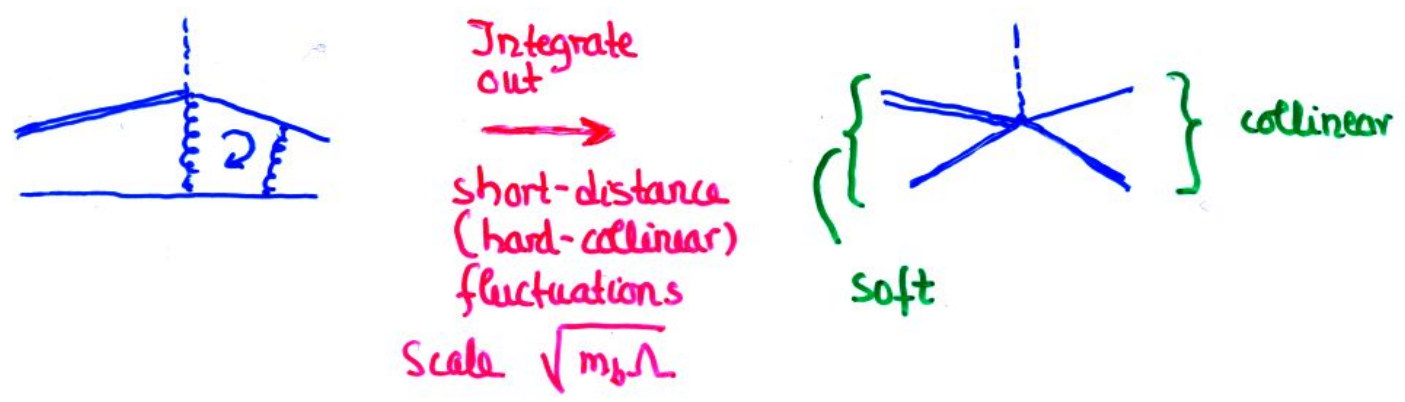 Integrate
out
short-distance
(hard-collinear)
fluctuations
Scale √m_bΛ
soft
collinear